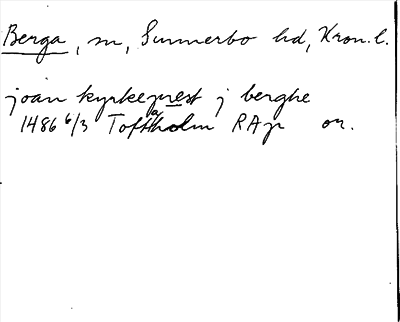 Berga, sn, Sunnerbo hd, Kron.l.
joan kyrkeprest j berghe
1486 6/3 Toftaholm RAp or.